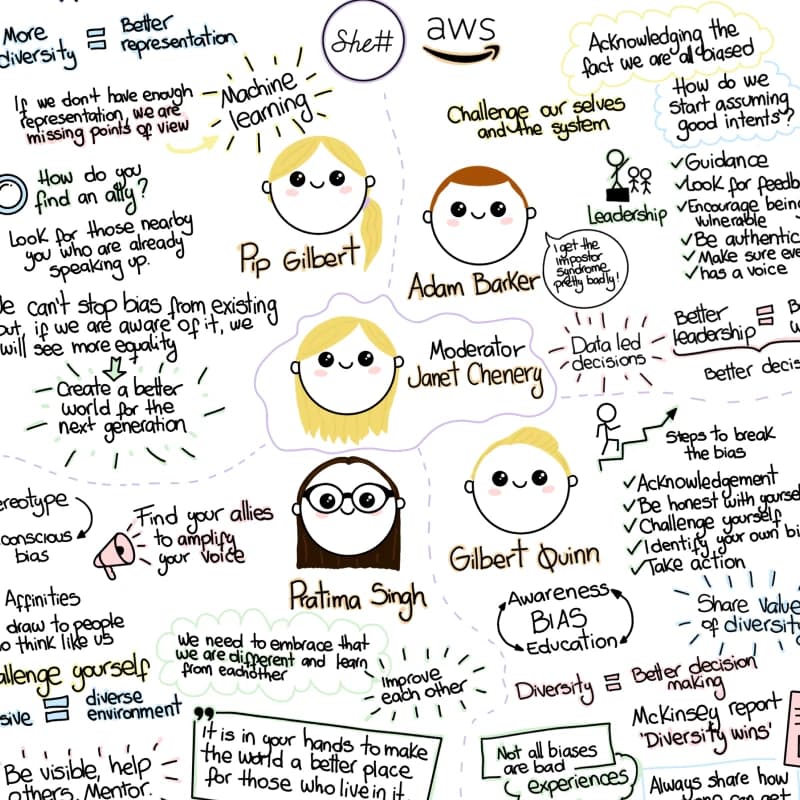 More
diversity = Better
representation
She#
aws
Acknowledging the
fact we are all biased
If we don't have enough
representation, we are
missing points of view
Machine
learning
Challenge our selves
and the system
How do we
start assuming
good intents?
How do you
find an ally?
Look for those nearby
you who are already
speaking up.
Pip Gilbert
Adam Barker
I get the
impostor
syndrome
pretty badly!
Leadership
✓Guidance
✓Look for feedb
✓Encourage being
vulnerable
✓Be authentic
✓Make sure eve
✓has a voice
e can't stop bias from existing
but, if we are aware of it, we
will see more equality
Create a better
world for the
next generation
Moderator
Janet Chenery
Data led
decisions
Better
leadership =
Better decis
Steps to break
the bias
✓Acknowledgement
✓Be honest with yourse
✓Challenge yourself
✓Identify your own bi
✓Take action
ereotype
conscious
bias
Find your allies
to amplify
your voice
Pratima Singh
Gilbert Quinn
Affinities
draw to people
o think like us
Awareness
BIAS
Education
Share value
of diversity
allenge yourself
sive = diverse
environment
We need to embrace that
we are different and learn
from eachother
Improve
each other
Diversity = Better decision
making
McKinsey report
'Diversity wins'
Be visible, help
others. Mentor.
"It is in your hands to make
the world a better place
for those who live in it.
Not all biases
are bad
experiences
Always share how
you can get